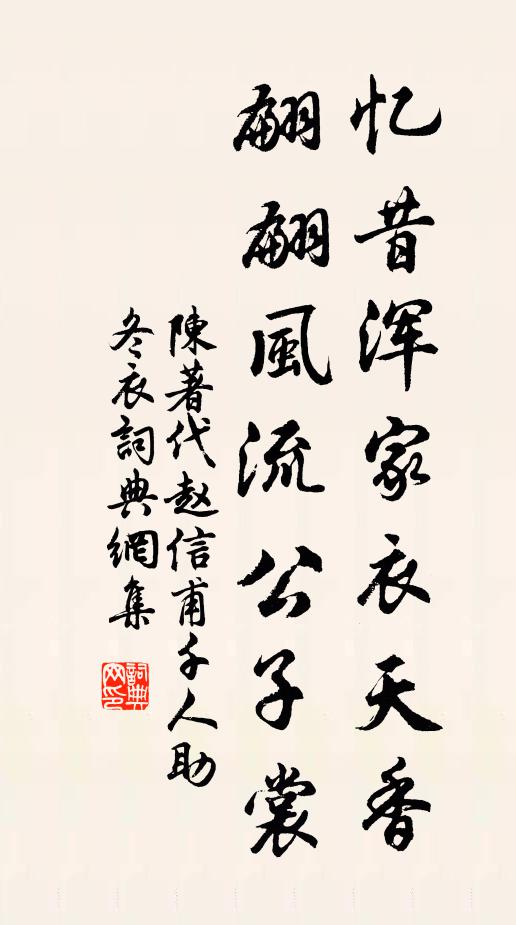 忆昔浑家衣天香
翩翩風流公子裳
陳著代赵信甫千人助
冬衣詞典網集
詞典网印